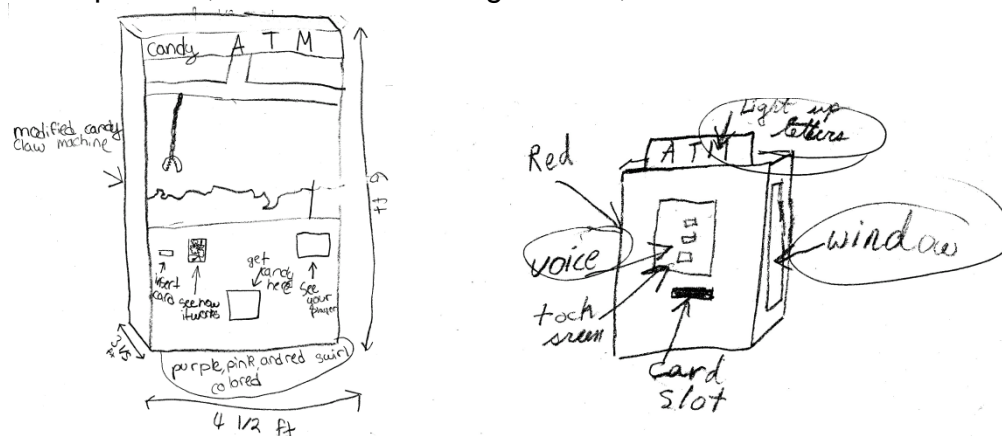 Candy A T M
modified candy
claw machine
6 ft
insert
card
see how
it works
get
candy
here
see
your
purple, pink, and red swirl
colored
4 1/2 ft
Light up
letters
A T M
Red
voice
window
toch
sreen
card
slot